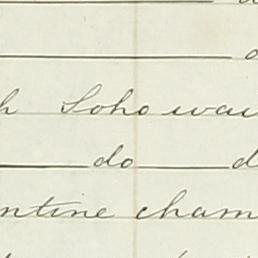 h Soho wa
do d
ntine cham